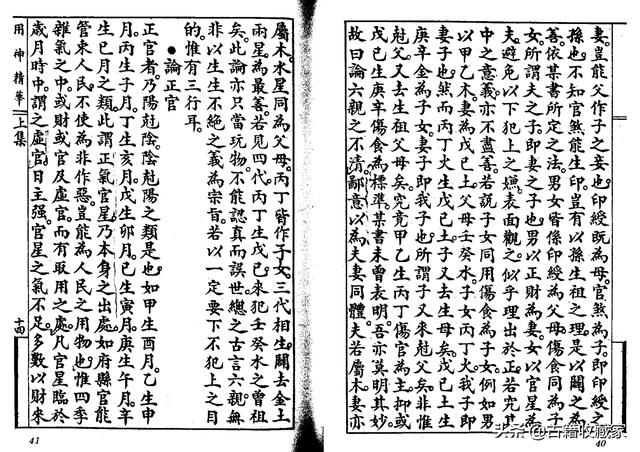 妻豈能父作子之妾也印綬既為母官煞為子即印綬之
孫也不知官煞能生印豈有以孫生祖之理是以闢之為
善依某書所定之法男女皆係印綬為父母傷食同為子
女所謂夫之子即妻之子也男以正財為妻女以官星為
夫避免以下犯上之嫌表面觀之似乎理出於正若究其
中之意義亦不盡善若說子女同用傷食為子女例如男
以甲乙木妻為戊己土父母壬癸水子女丙丁火我子即
妻子也然而丙丁火生戊己土子又去生母戊己土生
庚辛金為子女妻子即我子也所謂子又來尅父矣非惟
尅父又去生祖父母矣究竟甲乙生丙丁傷官為主抑或
戊己生庚辛傷食為標準某書未曾表明吾亦莫明其妙
故曰論六親之不清鄙意以為夫妻同體夫若屬木妻亦
40
屬木水星同為父母丙丁皆作子女三代相生闢去金土
兩星為最善若見四代丙丁生戊己來犯壬癸水之曾祖
矣此論亦只當玩物不能認真而誤世總之古言六親無
非以生生不絕之義為宗旨若以一定要下不犯上之目
的惟有三行耳
●論正官
正官者乃陽尅陰陰尅陽之類是也如甲生酉月乙生申
月丙生子月丁生亥月戊生卯月己生寅月庚生午月辛
生巳月之類此謂正氣官星乃本身之出處如府縣官能
管束人民不使為非作惡豈能為人民之用物也惟四季
雜氣之中或財或官及虛官而有取用之處凡官星臨於
歲月時中謂之虛官日主强官星之氣不足多數以財來
用神精華 上集
十四
41
头条@古籍收藏家